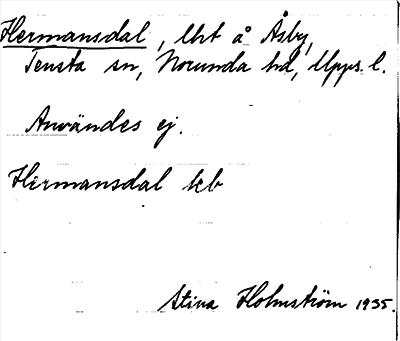 Hermansdal, lht å Åsby,
Tensta sn, Norunda hd, Upps. l.
Användes ej.
Hermansdal kb
Stina Holmström 1935.